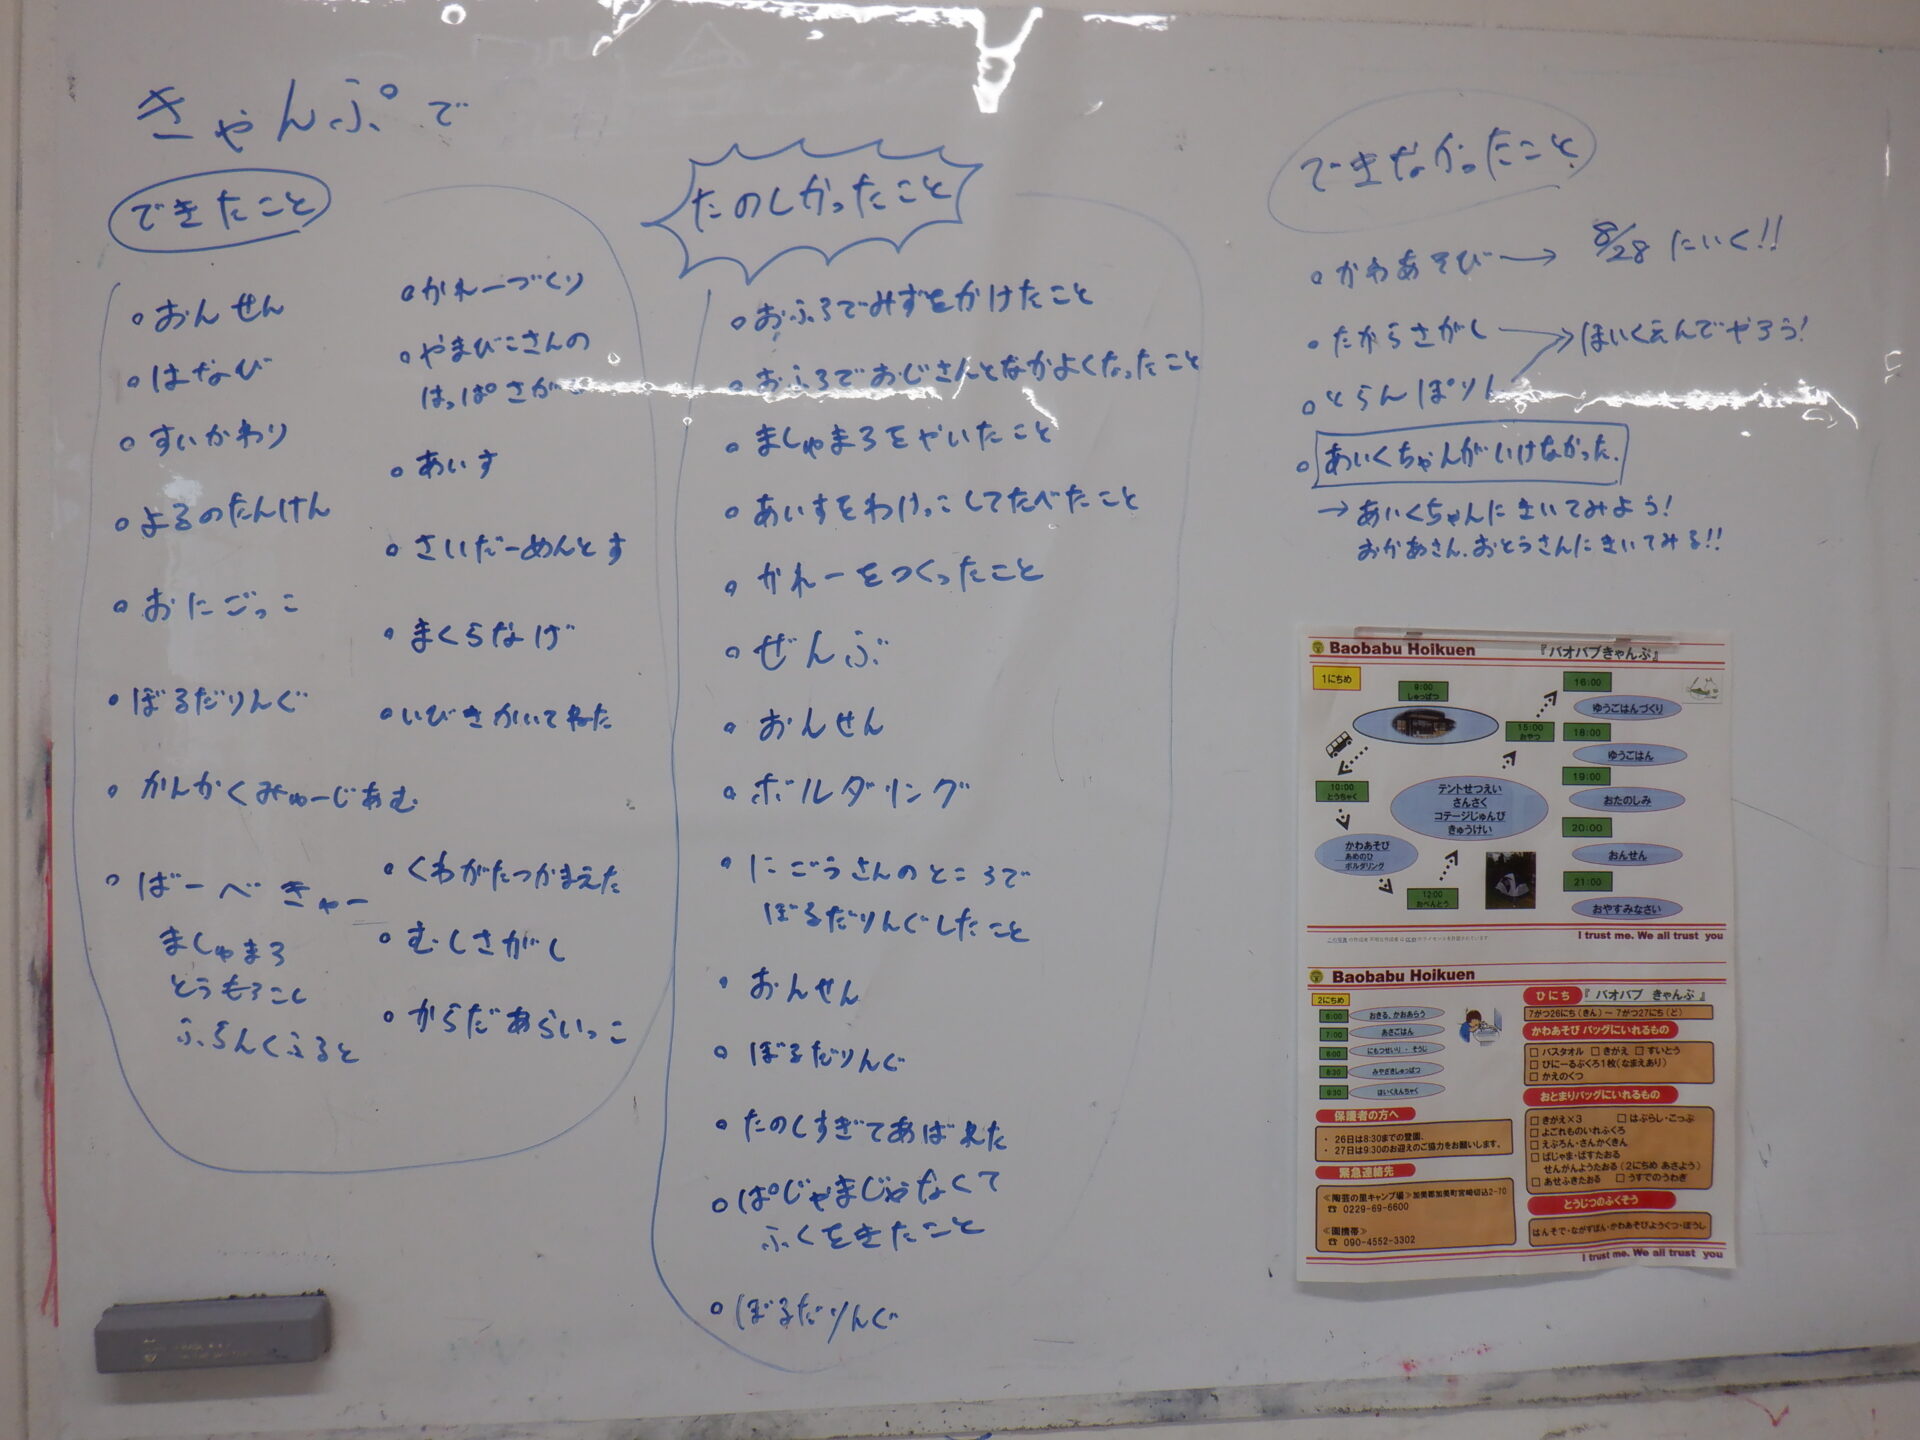 きゃんぷで
できたこと
・おんせん
・はなび
・すいかわり
・よるのたんけん
・おにごっこ
・ぼるだりんぐ
・かんかくみゅーじあむ
・ばーべきゅー
ましゅまろ
とうもろこし
ふらんくふると
・かれーづくり
・やまびこさんの
はっぱさが
・あいす
・さいだーめんとす
・まくらなげ
・いびきかいてねた
・くわがたつかまえた
・むしさがし
・からだあらいっこ
たのしかったこと
・おふろでみずをかけたこと
・おふろでおじさんとなかよくなったこと
・ましゅまろをやいたこと
・あいすをわけっこしてたべたこと
・かれーをつくったこと
・ぜんぶ
・おんせん
・ボルダリング
・にごうさんのところで
ぼるだりんぐしたこと
・おんせん
・ぼるだりんぐ
・たのしすぎてあばれた
・ぱじゃまじゃなくて
ふくをきたこと
・ぼるだりんぐ
できなかったこと
・かわあそび→ 8/28 にいく!!
・たからさがし→ほいくえんでやろう!
・とらんぽりん
・あいくちゃんがいけなかった.
→あいくちゃんにきいてみよう!
おかあさん.おとうさんにきいてみる!!
Baobabu Hoikuen 『バオバブきゃんぷ』
1にちめ
9:00
しゅっぱつ
10:00
とうちゃく
かわあそび
あめのひ
ボルダリング
12:00
おべんとう
テントせつえい
さんさく
コテージじゅんび
きゅうけい
15:00
おやつ
16:00
ゆうごはんづくり
18:00
ゆうごはん
19:00
おたのしみ
20:00
おんせん
21:00
おやすみなさい
I trust me. We all trust you
Baobabu Hoikuen
2にちめ
6:00 おきる、かおあらう
7:00 あさごはん
8:00 にもつせいり・そうじ
8:30 みやざきしゅっぱつ
9:30 ほいくえんちゃく
保護者の方へ
・ 26日は8:30までの登園、
・ 27日は9:30のお迎えのご協力をお願いします。
緊急連絡先
≪陶芸の里キャンプ場≫加美郡加美町宮崎切込2-10
☎ 0229-69-6600
≪園携帯≫
☎ 090-4552-3302
ひにち 『 バオバブ きゃんぷ 』
7がつ26にち(きん)〜7がつ27にち(ど)
かわあそび バッグにいれるもの
□ バスタオル □ きがえ □ すいとう
□ びにーるぶくろ1枚(なまえあり)
□ かえのくつ
おとまりバッグにいれるもの
□ きがえ×3 □ はぶらし・こっぷ
□ よごれものいれふくろ
□ えぷろん・さんかくきん
□ ぱじゃま・ばすたおる
せんがんようたおる(2にちめ あさよう)
□ あせふきたおる □ うすでのうわぎ
とうじつのふくそう
はんそで・ながずぼん・かわあそびようくつ・ぼうし
I trust me. We all trust you